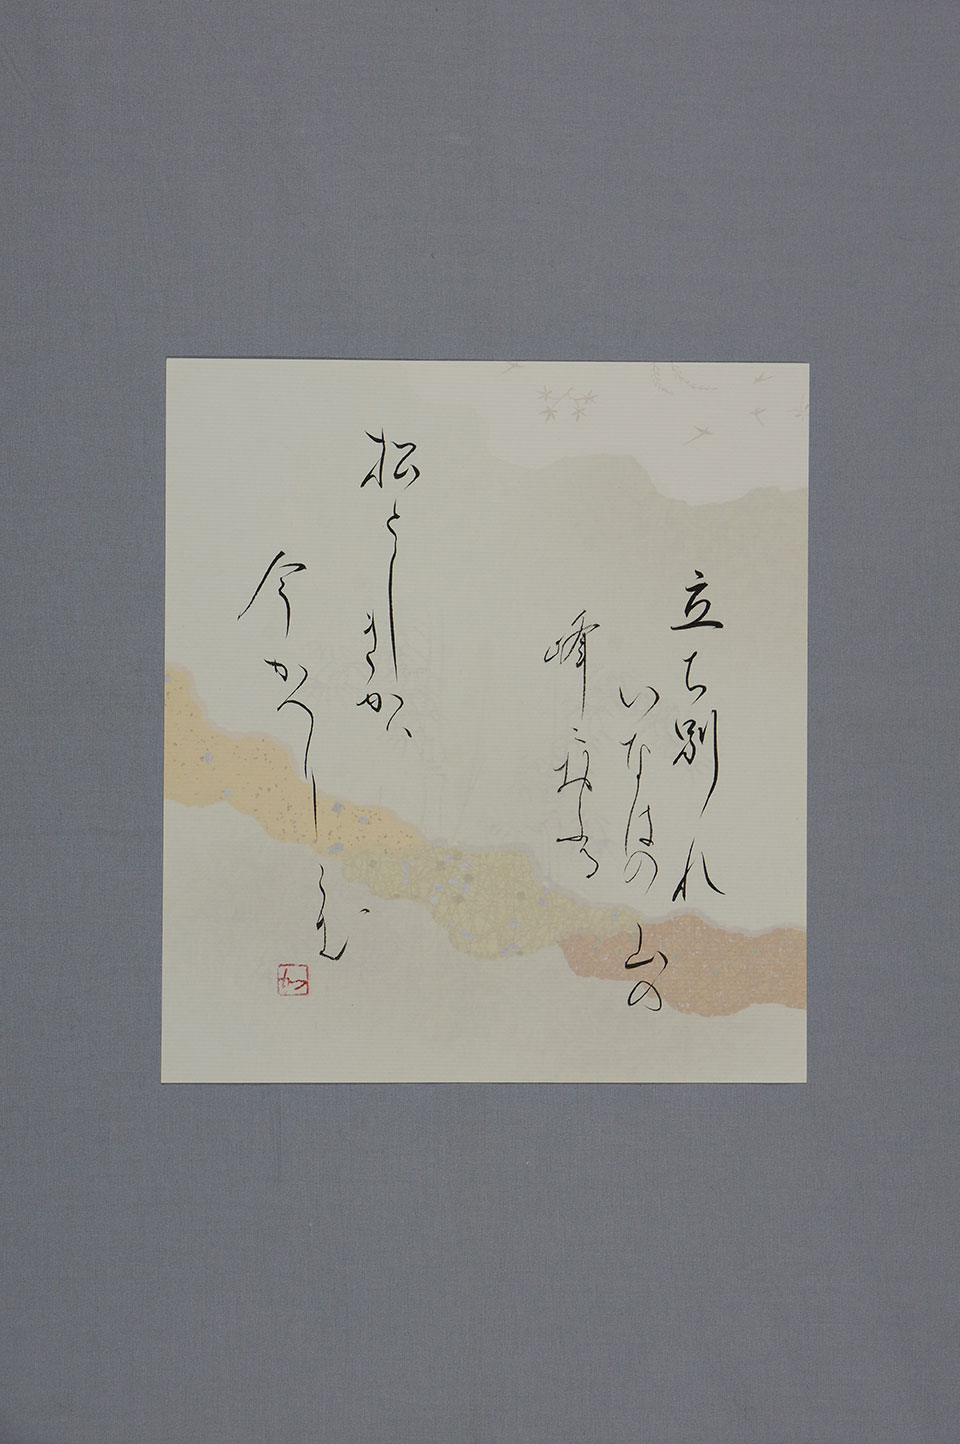 立ち別れ
いなはの山の
峰におふる
松としきかは
今かへりこむ